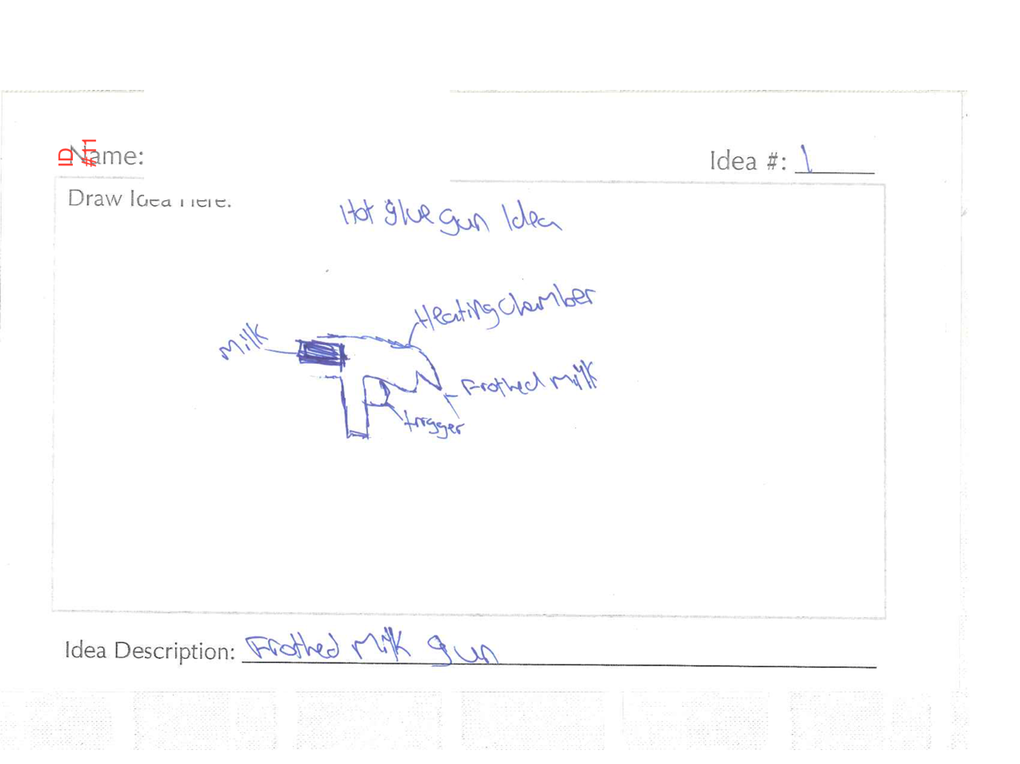 ID #11
Name:
Idea #: 1
Draw Idea Here:
Hot glue gun Idea
Heating Chamber
Milk
Frothed Milk
trigger
Idea Description: Frothed Milk gun